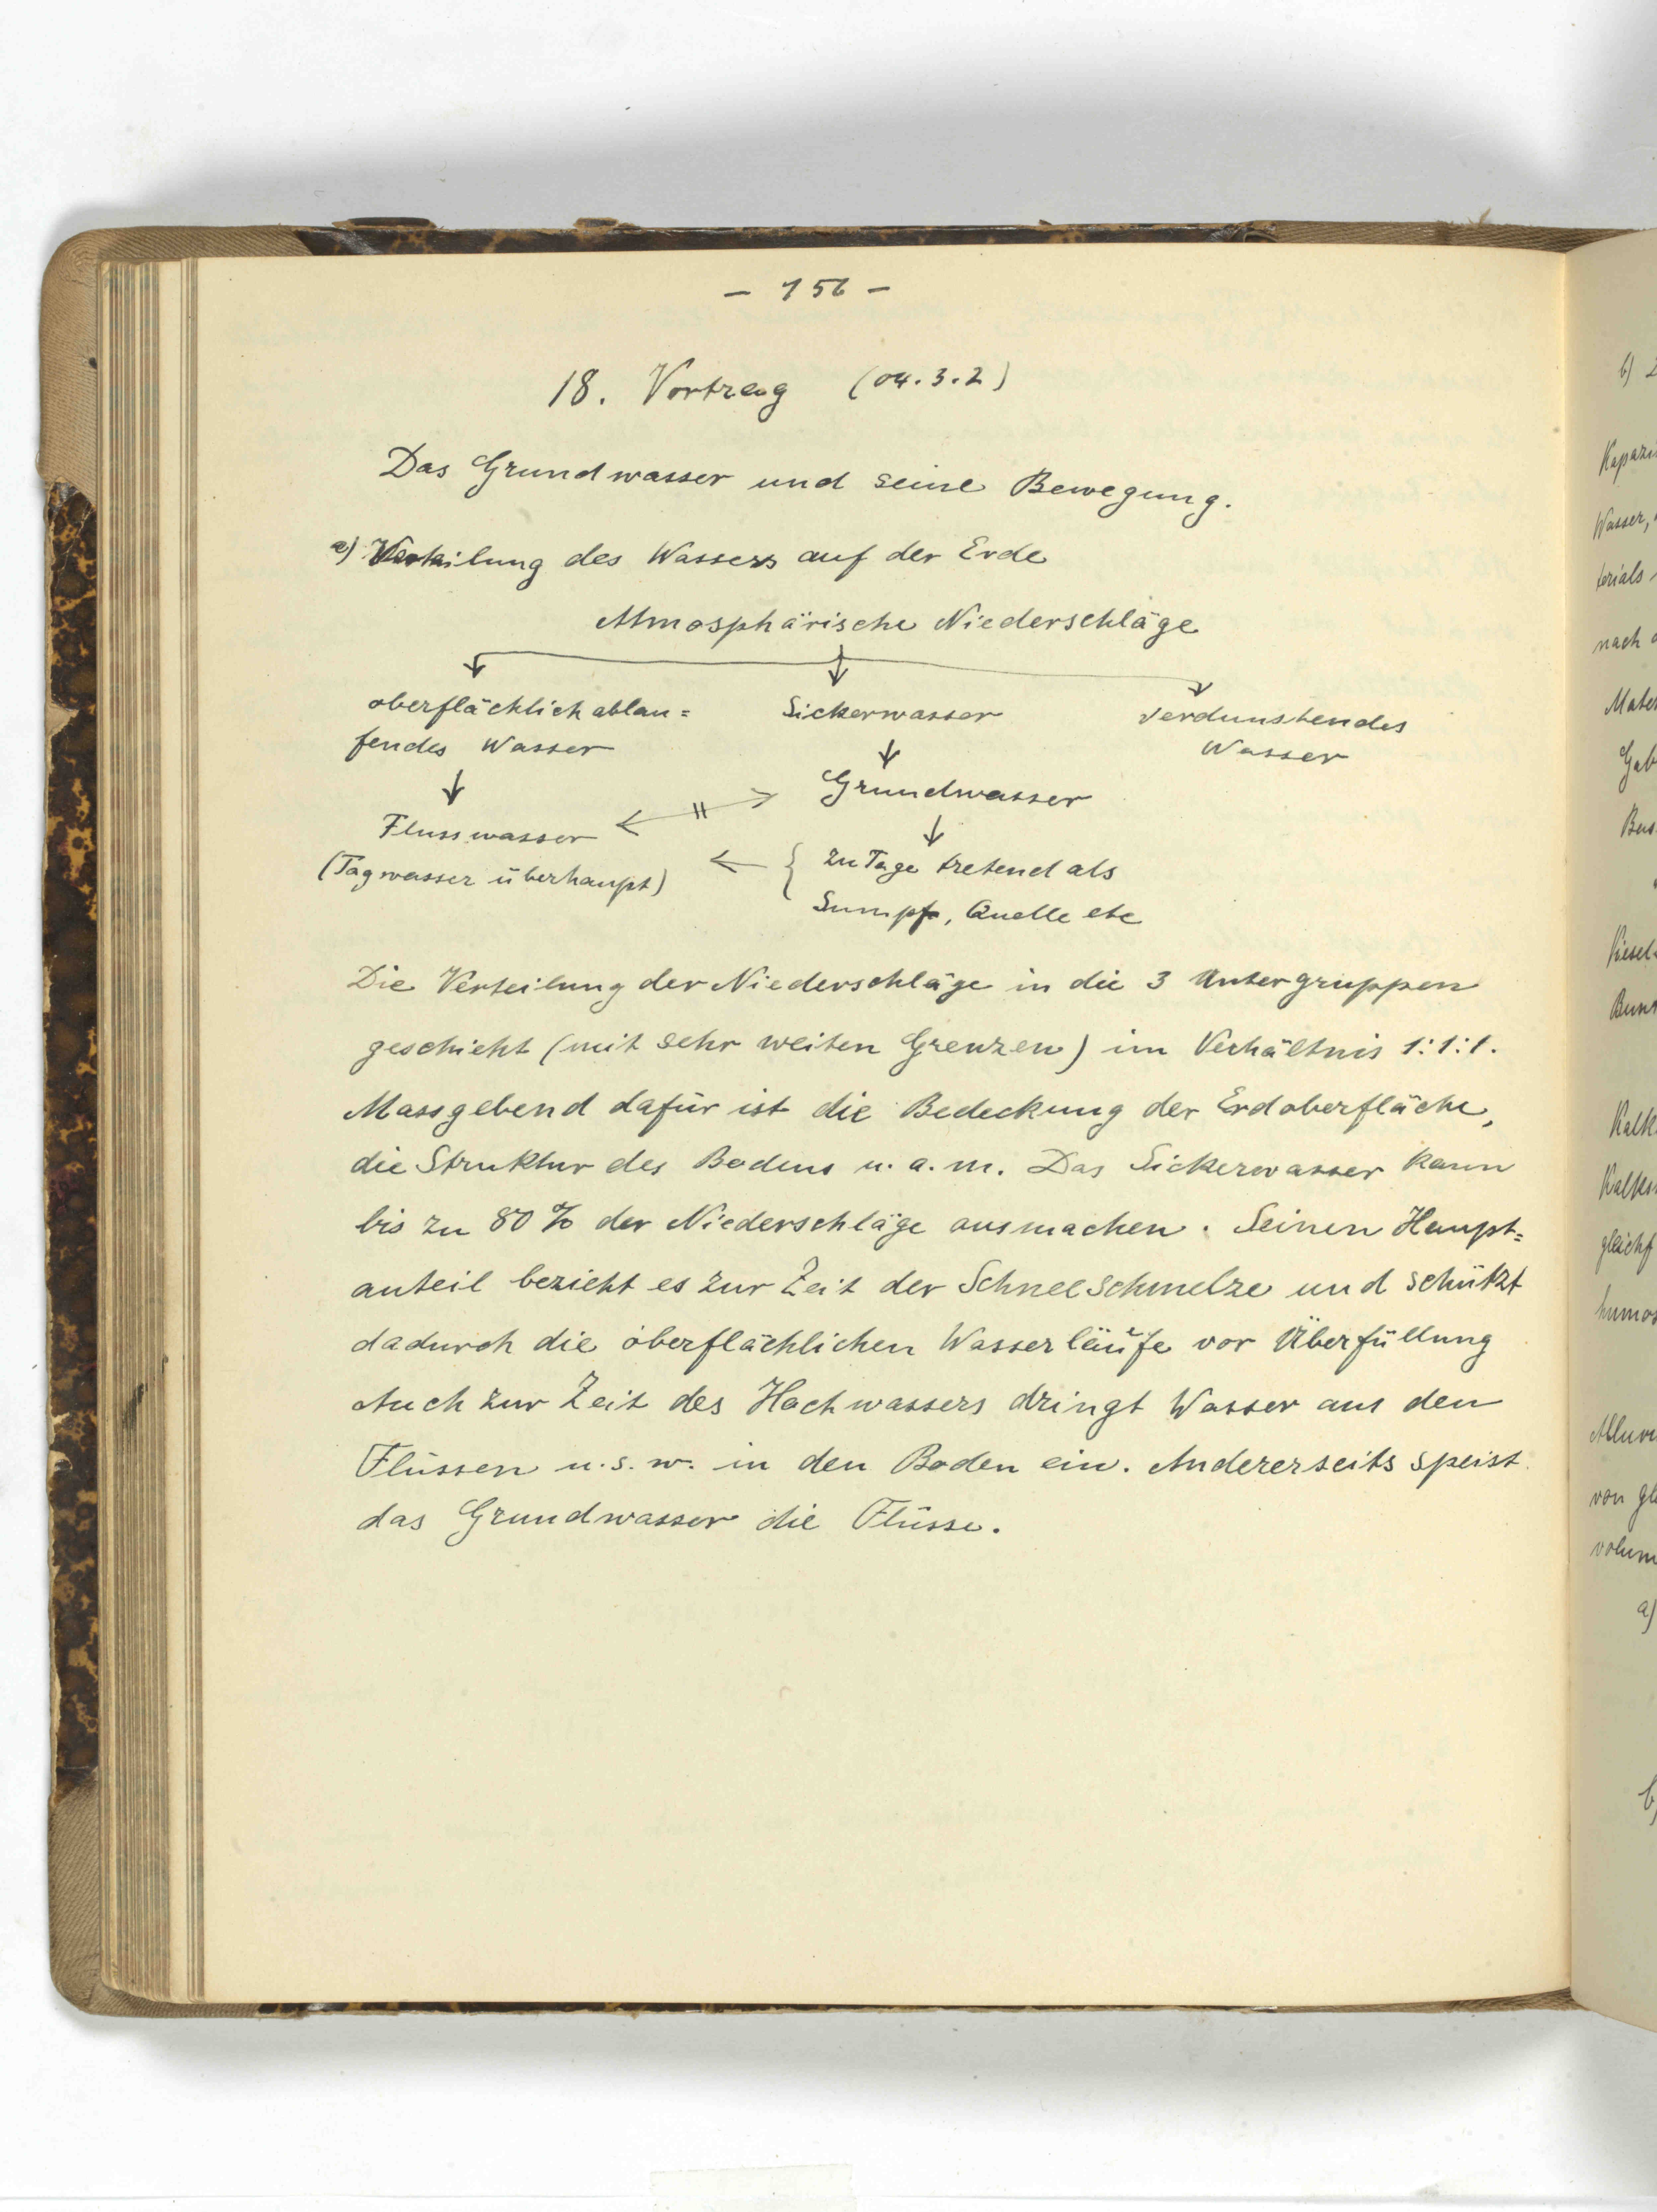 - 156 -
18. Vortrag (04.3.2)
Das Grundwasser und seine Bewegung.
a) Verteilung des Wassers auf der Erde
Atmosphärische Niederschläge
oberflächlich ablau=
fendes Wasser
Sickerwasser
Verdunstendes
Wasser
Grundwasser
Flusswasser
(Tagwasser überhaupt)
zu Tage tretend als
Sumpf, Quelle etc
Die Verteilung der Niederschläge in die 3 Untergruppen
geschieht (mit sehr weiten Grenzen) im Verhältnis 1:1:1.
Massgebend dafür ist die Bedeckung der Erdoberfläche,
die Struktur des Bodens u. a. m. Das Sickerwasser kann
bis zu 80 % der Niederschläge ausmachen. Seinen Haupt=
anteil bezieht es zur Zeit der Schneeschmelze und schützt
dadurch die oberflächlichen Wasserläufe vor Überfüllung
Auch zur Zeit des Hochwassers dringt Wasser aus den
Flüssen u. s. w. in den Boden ein. Andererseits speist
das Grundwasser die Flüsse.
b)
Wasser,
terials
nach
Kiesel-
Kalk
von
a)
b)